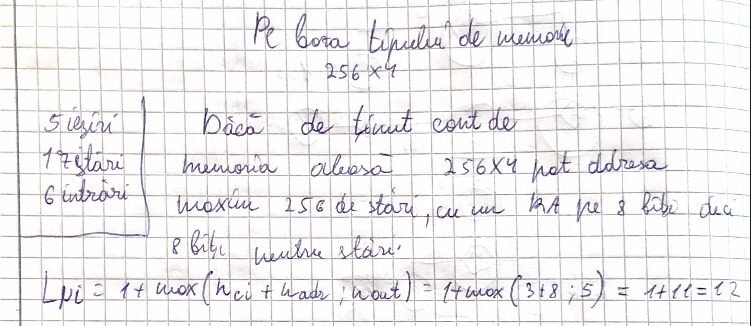 Pe baza tipului de memorie
256x4
5 ieșiri
17 stări
6 intrări
Dăcă de ținut cont de
memoria aleasă 256x4 pot adresa
maxim 256 de stări, cu un RA pe 8 biți deci
8 biți pentru stări.
Lμi = 1 + max(nci + nadr ; nout) = 1 + max(3+8 ; 5) = 1+11 = 12